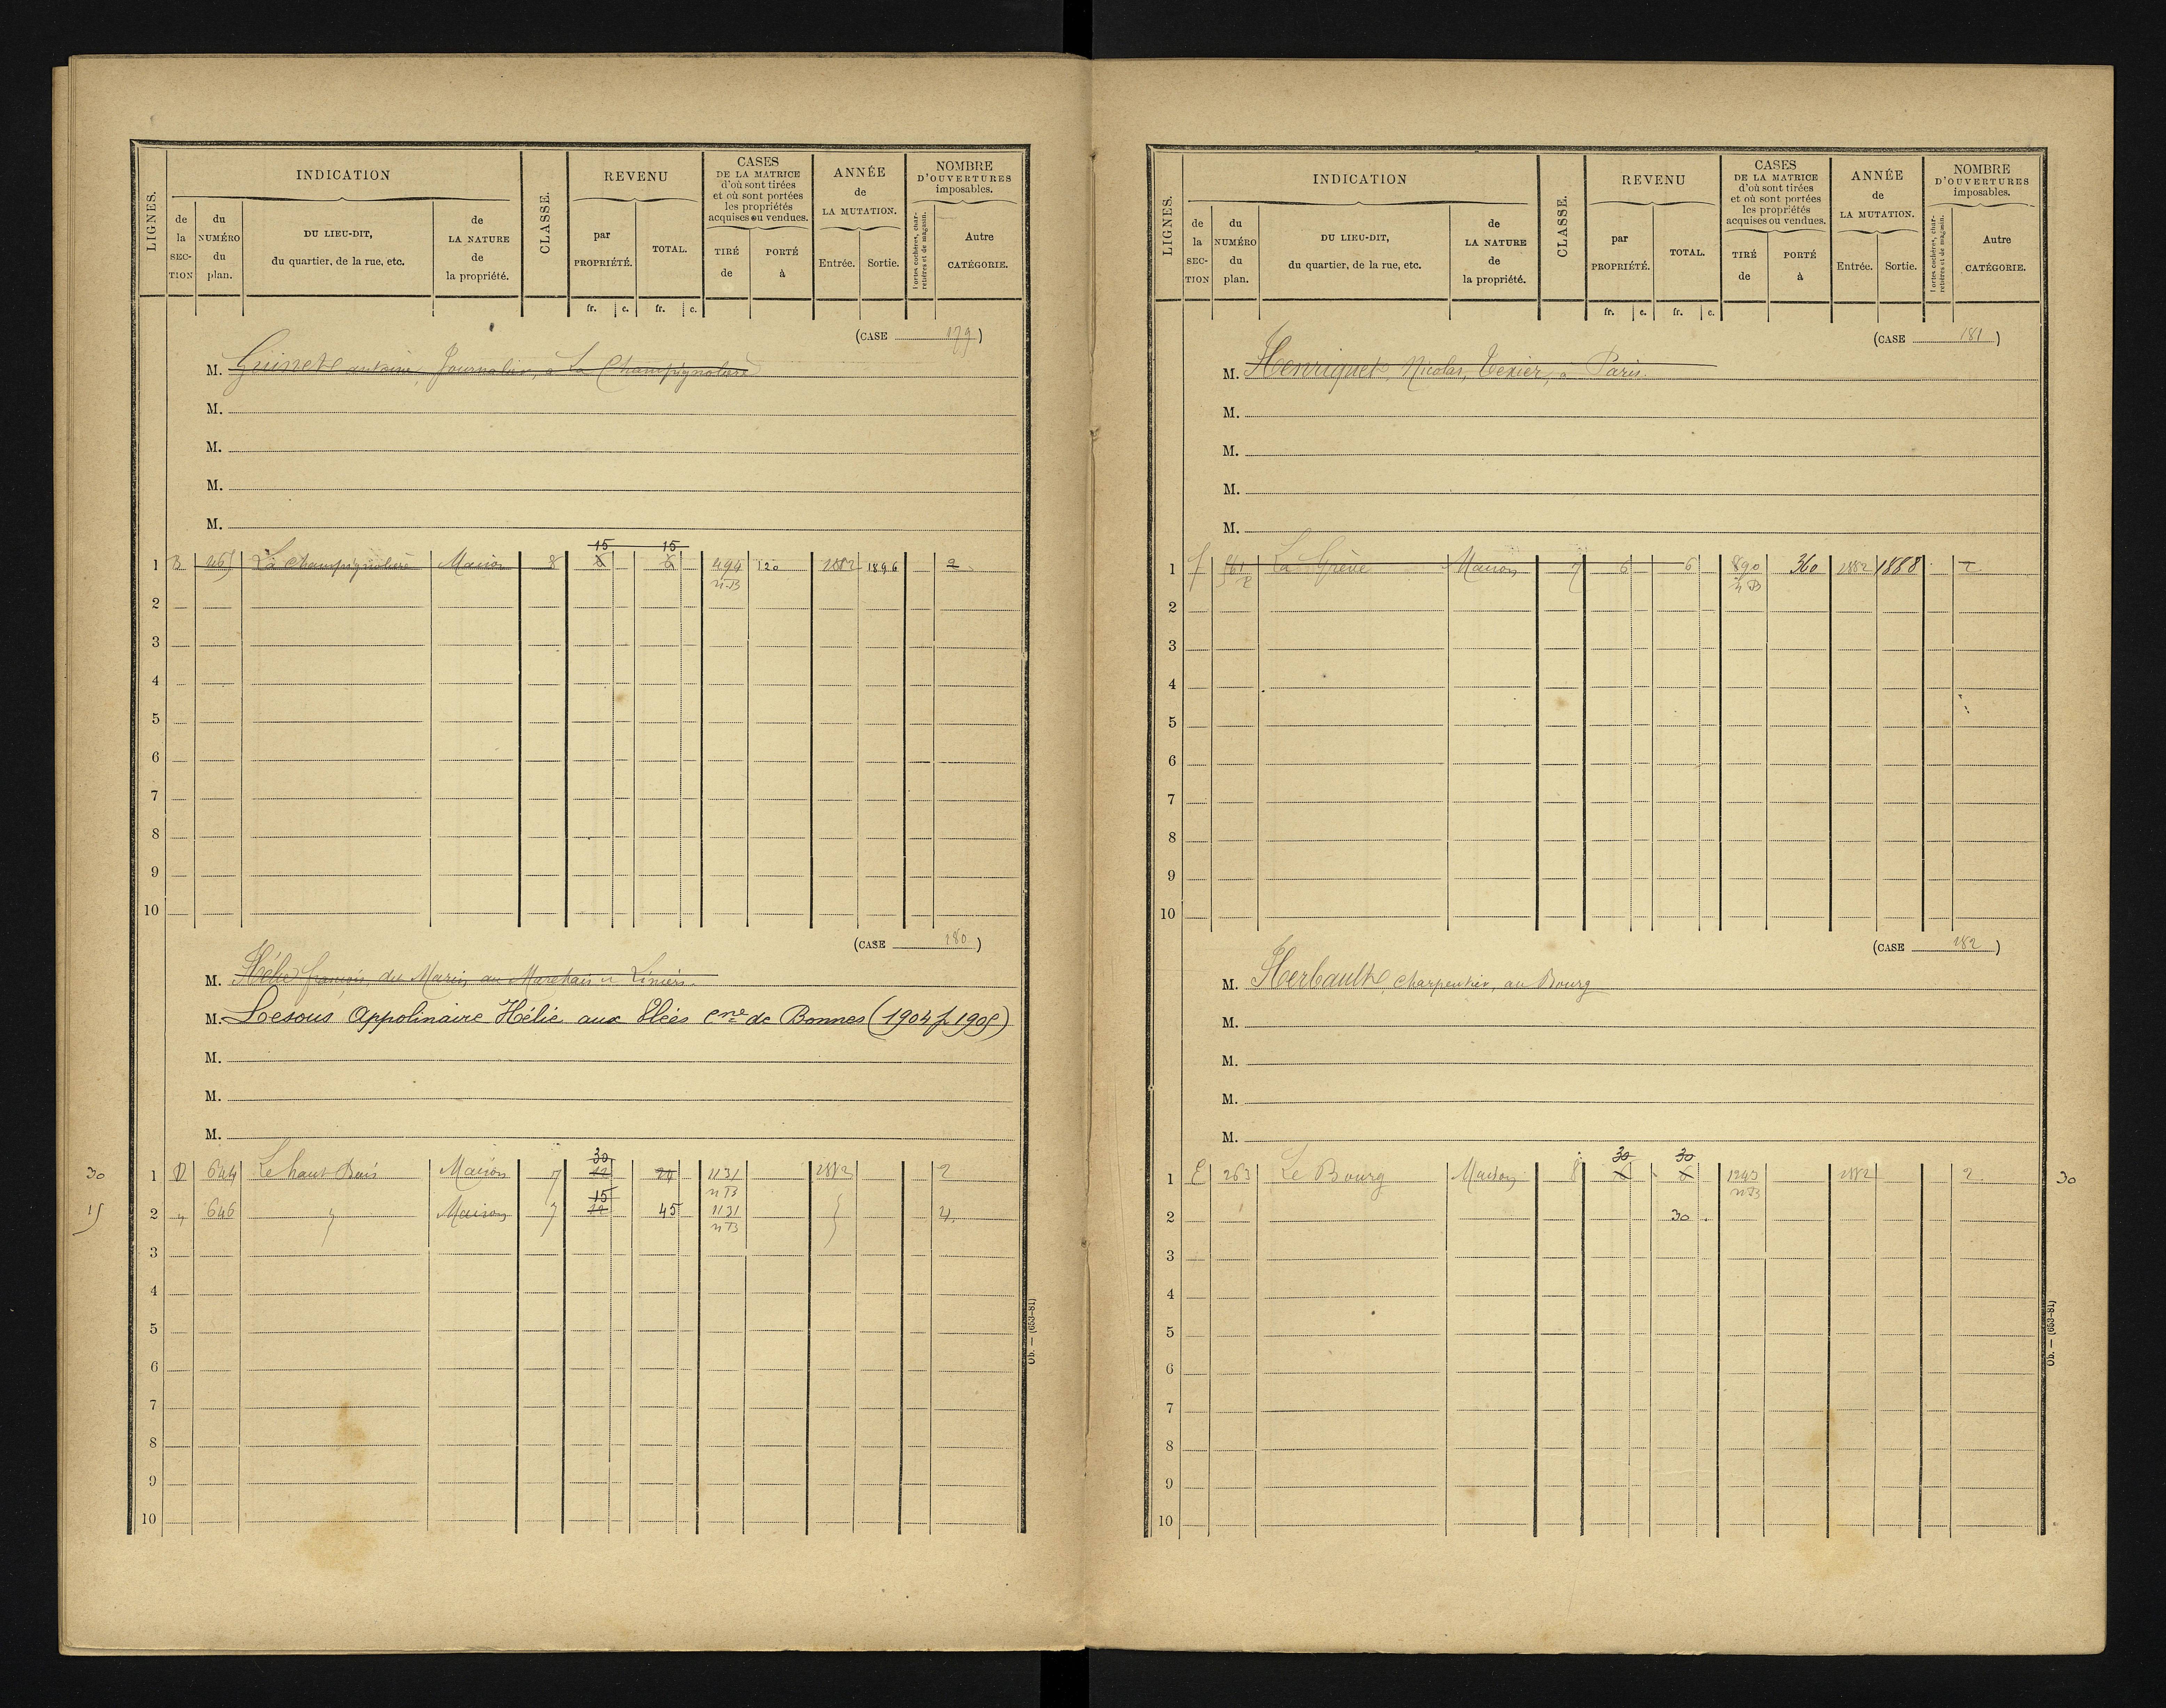 LIGNES.
INDICATION
de la SECTION
du NUMÉRO du plan.
DU LIEU-DIT, du quartier, de la rue, etc.
de LA NATURE de la propriété.
CLASSE.
REVENU
par PROPRIÉTÉ.
TOTAL.
fr. c. fr. c.
CASES DE LA MATRICE d'où sont tirées et où sont portées les propriétés acquises ou vendues.
TIRÉ de
PORTÉ à
ANNÉE de LA MUTATION.
Entrée. Sortie.
NOMBRE D'OUVERTURES imposables.
Portes cochères, charretières et de magasin.
Autre CATÉGORIE.
(CASE 179)
M. Guinet antoine, Journalier, à La Champignolière
M.
M.
M.
M.
15 15
1 B 265 La Champignolière Maison 8 6 6 494 120 1882 1896 2
n.B
2
3
4
5
6
7
8
9
10
(CASE 180)
M. Hélie françois, au Marchais
M. Lesous Appolinaire Hélie aux cne de Bonnes (1904 p 1905)
M.
M.
M.
30
30 1 D 644 Le haut Bois Maison 7 12 24 1131 1882 2
nB
15
15 2 " 646 " Maison 7 12 45 1131 " 4.
nB
3
4
5
6
7
8
9
10
Ob. — (653-81)
LIGNES.
INDICATION
de la SECTION
du NUMÉRO du plan.
DU LIEU-DIT, du quartier, de la rue, etc.
de LA NATURE de la propriété.
CLASSE.
REVENU
par PROPRIÉTÉ.
TOTAL.
fr. c. fr. c.
CASES DE LA MATRICE d'où sont tirées et où sont portées les propriétés acquises ou vendues.
TIRÉ de
PORTÉ à
ANNÉE de LA MUTATION.
Entrée. Sortie.
NOMBRE D'OUVERTURES imposables.
Portes cochères, charretières et de magasin.
Autre CATÉGORIE.
(CASE 181)
M. Henriquet, Nicolas, Texier, à Paris.
M.
M.
M.
M.
1 f La Grève Maison 7 6 6 890 360 1882 1888 2
n B
2
3
4
5
6
7
8
9
10
(CASE 182)
M. Herbault, charpentier, au Bourg
M.
M.
M.
M.
30 30
1 E 263 Le Bourg Maison 8 6 6 1243 1882 2. 30
nB
2 30
3
4
5
6
7
8
9
10
Ob. — (653-81)